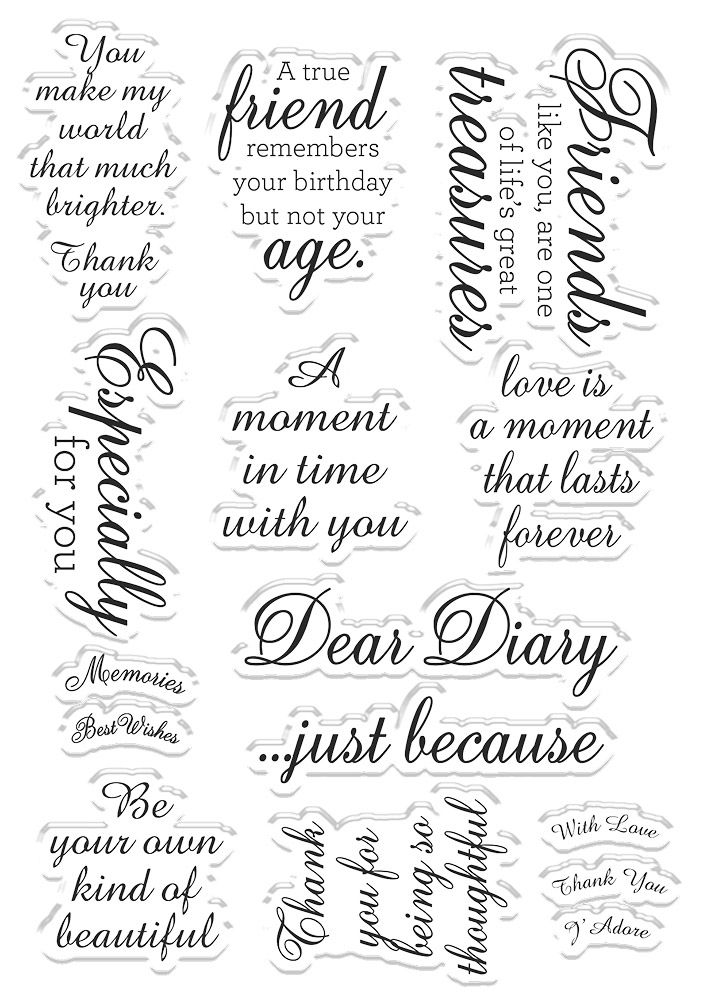 You
make my
world
that much
brighter.
Thank
you
A true
friend
remembers
your birthday
but not your
age.
Friends
like you, are one
of life's great
treasures
Especially
for you
A
moment
in time
with you
love is
a moment
that lasts
forever
Dear Diary
...just because
Memories
Best Wishes
Be
your own
kind of
beautiful
Thank
you for
being so
thoughtful
With Love
Thank You
J' Adore